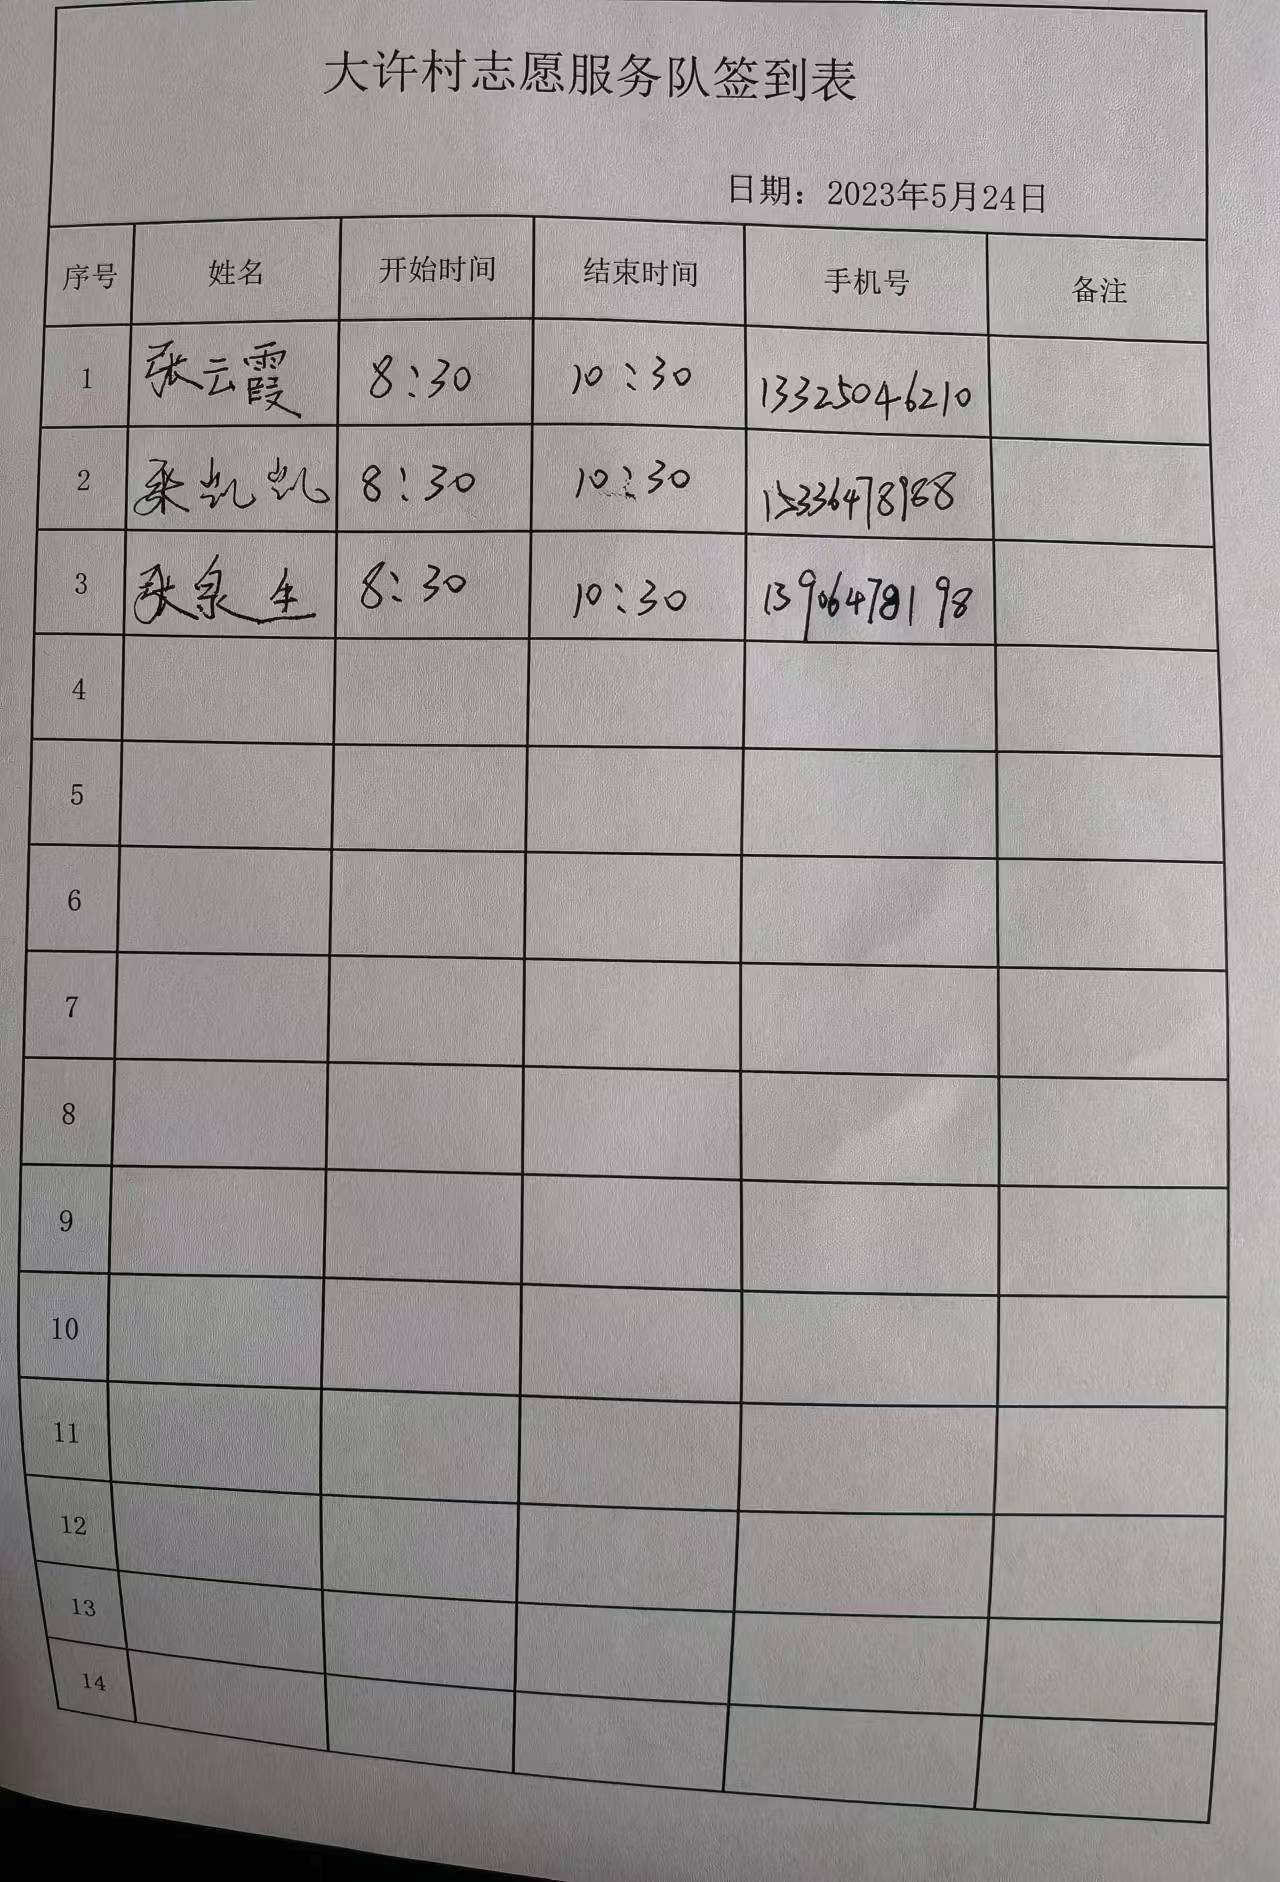 大许村志愿服务队签到表
日期：2023年5月24日
序号 姓名 开始时间 结束时间 手机号 备注
1 张云霞 8:30 10:30 13325046210
2 凯凯 8:30 10:30 15336478988
3 张泉生 8:30 10:30 13906478198
4
5
6
7
8
9
10
11
12
13
14